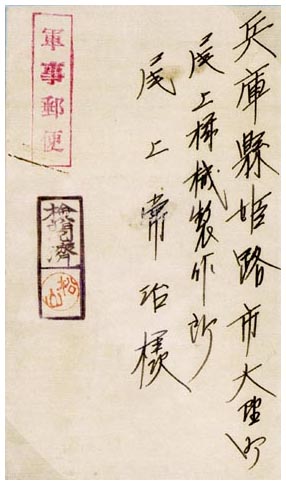 兵庫縣姫路市大野町
尾上機械製作所
尾上常治様
軍事郵便
検閲済
松山